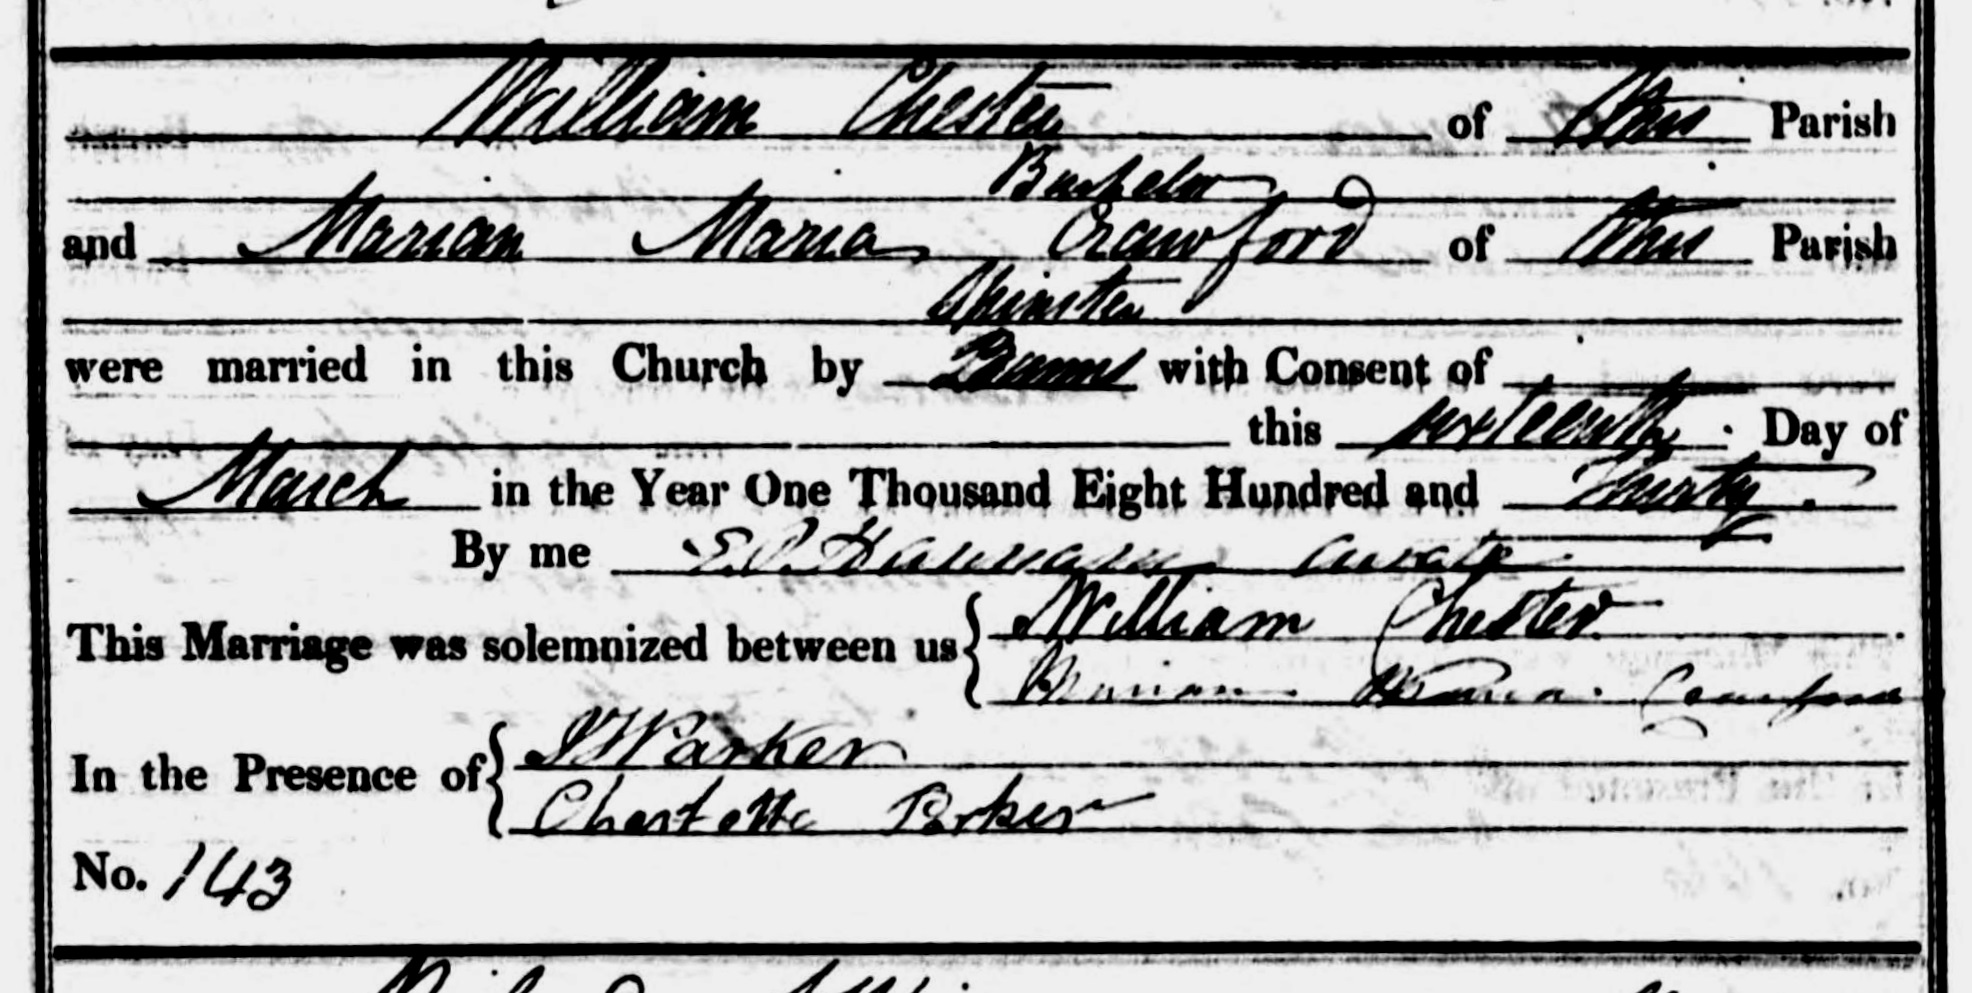 William Chester of this Parish
Bachelor
and Marian Maria Crawford of this Parish
Spinster
were married in this Church by Banns with Consent of
this sixteenth Day of
March in the Year One Thousand Eight Hundred and Thirty.
By me Curate
This Marriage was solemnized between us { William Chester
Marian Maria Crawford
In the Presence of { Parker
Charlotte Parker
No. 143